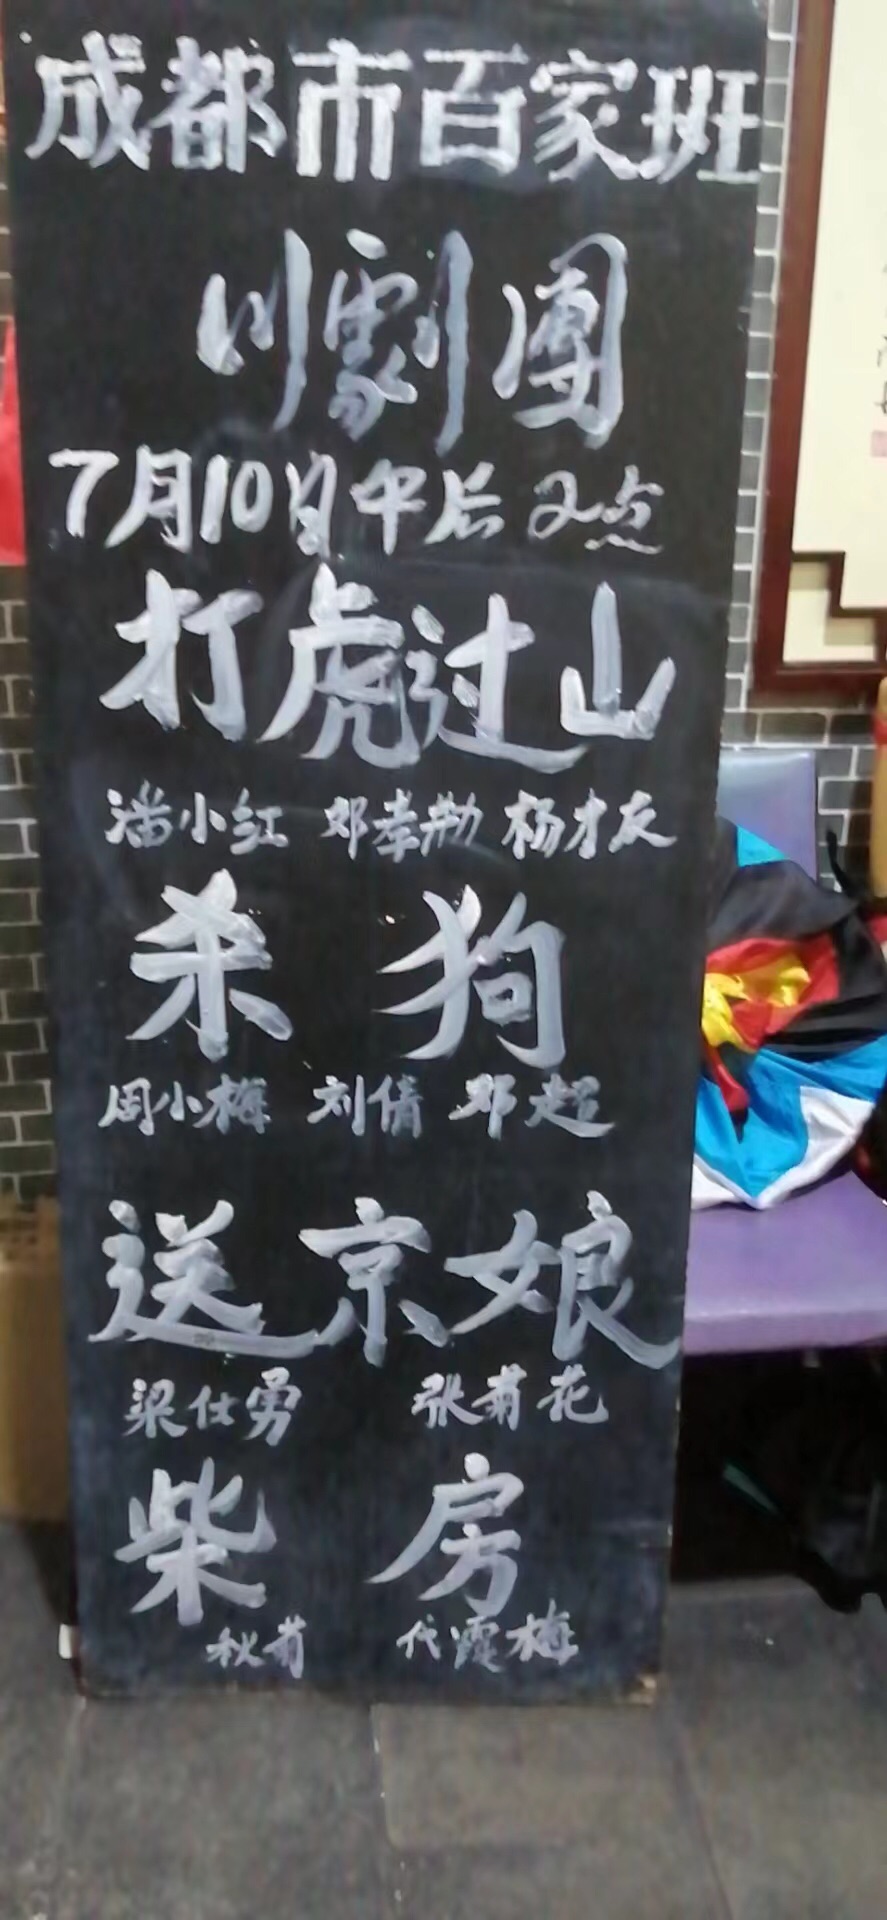 成都市百家班
川劇團
7月10日午后2点
打虎过山
潘小红 邓孝勤 杨才友
杀狗
周小梅 刘倩 邓超
送京娘
梁仕勇 张菊花
柴房
秋菊 代霞梅